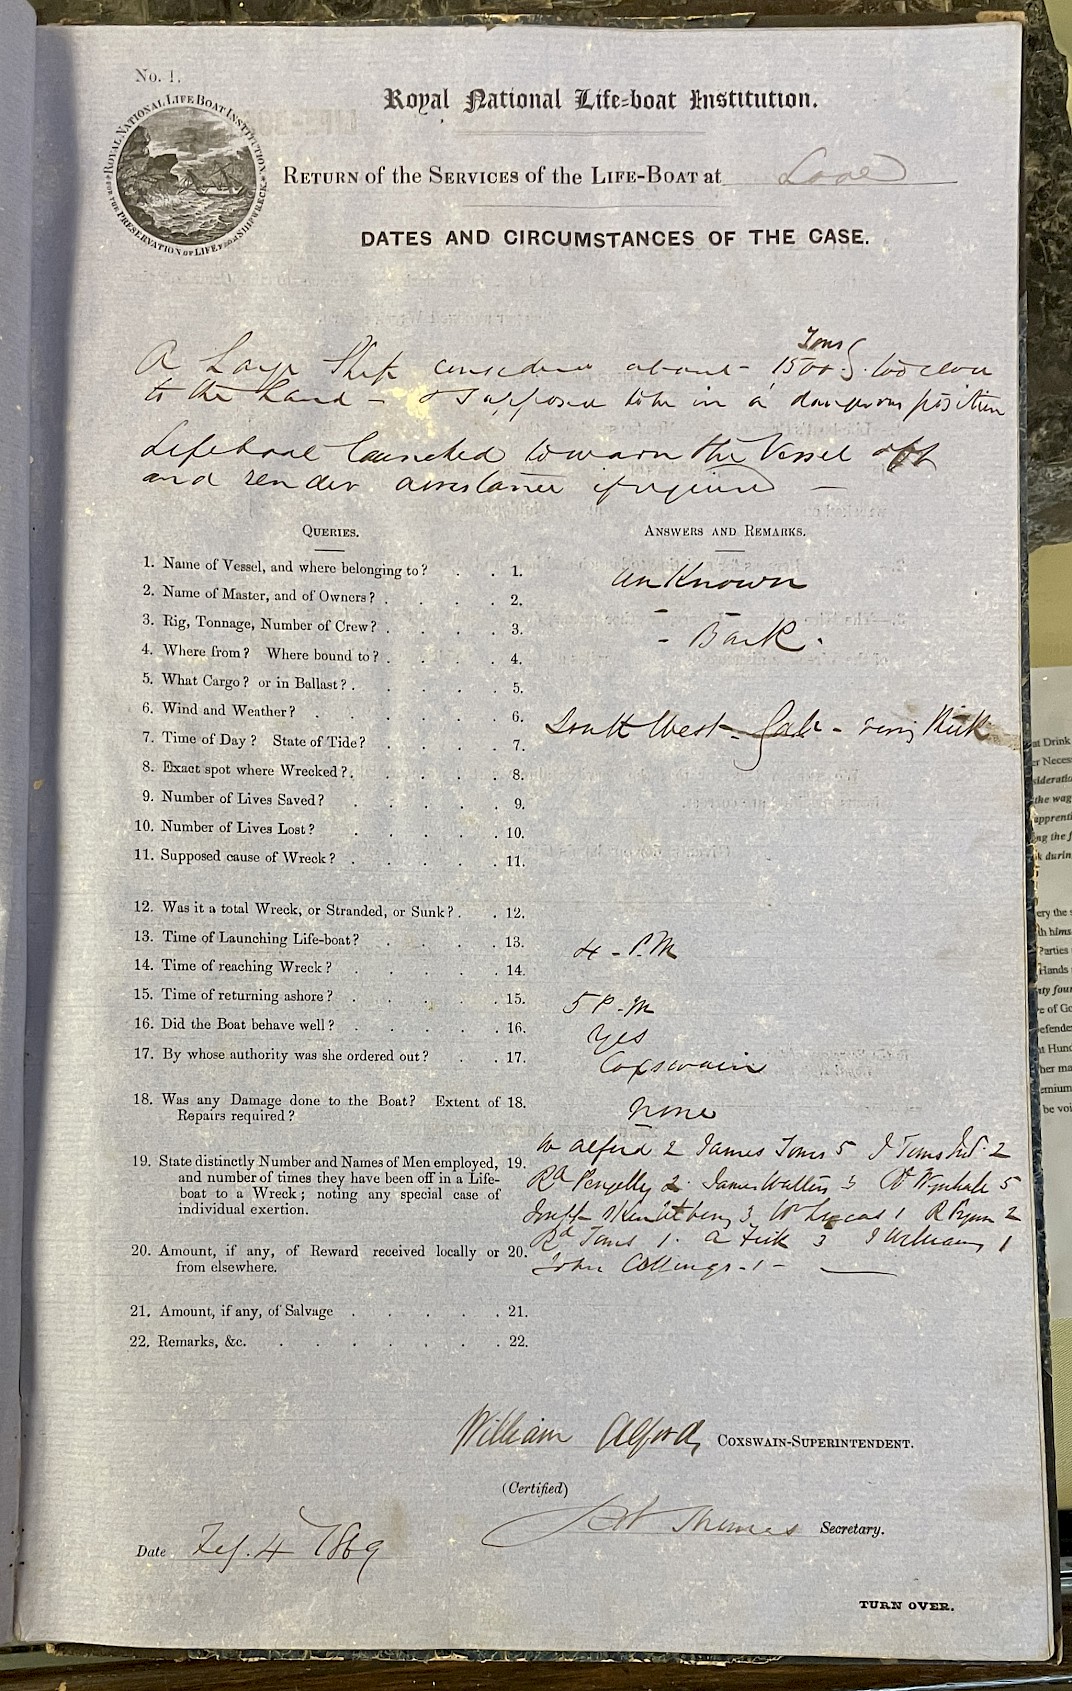 No. 1.
ROYAL NATIONAL LIFE BOAT INSTITUTION
FOR THE PRESERVATION OF LIFE FROM SHIPWRECK
Royal National Life-boat Institution.
RETURN of the SERVICES of the LIFE-BOAT at Looe
DATES AND CIRCUMSTANCES OF THE CASE.
Tons
A Large Ship considered about 1500 too close
to the Land - & supposed to be in a dangerous position
Lifeboat launched to warn the Vessel off
and render assistance if required -
QUERIES.
ANSWERS AND REMARKS.
1. Name of Vessel, and where belonging to? 1. unknown
2. Name of Master, and of Owners? 2. -
3. Rig, Tonnage, Number of Crew? 3. - Bark.
4. Where from? Where bound to? 4.
5. What Cargo? or in Ballast? 5.
6. Wind and Weather? 6. South West - Gale - very thick
7. Time of Day? State of Tide? 7.
8. Exact spot where Wrecked? 8.
9. Number of Lives Saved? 9.
10. Number of Lives Lost? 10.
11. Supposed cause of Wreck? 11.
12. Was it a total Wreck, or Stranded, or Sunk? 12.
13. Time of Launching Life-boat? 13. 4 - P.M
14. Time of reaching Wreck? 14.
15. Time of returning ashore? 15. 5 P.M
16. Did the Boat behave well? 16. Yes
17. By whose authority was she ordered out? 17. Coxswain
18. Was any Damage done to the Boat? Extent of 18. none
Repairs required?
19. State distinctly Number and Names of Men employed, 19. W Alford 2 James Toms 5 J Toms 2
and number of times they have been off in a Life- Rd Pengelly 2 James Walters 3 5
boat to a Wreck; noting any special case of Joseph 3 W Lucas 1 R Prynn 2
individual exertion. Rd Toms 1. 3 J Williams 1
20. Amount, if any, of Reward received locally or 20. John Collings - 1 -
from elsewhere.
21. Amount, if any, of Salvage 21.
22. Remarks, &c. 22.
William Alford, COXSWAIN-SUPERINTENDENT.
(Certified)
Thomas Secretary.
Date Feb. 4 1869
TURN OVER.